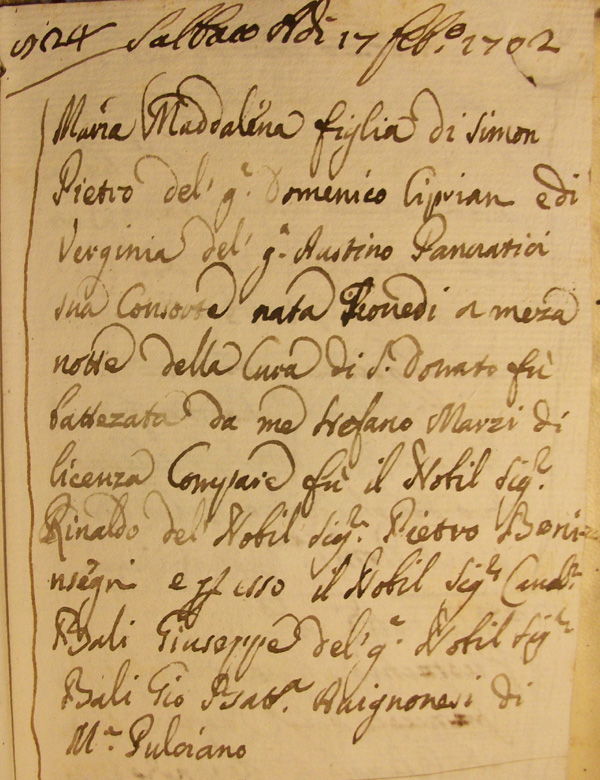 24 Sabbato Adi 17 feb.o 1702
Maria Maddalena figlia di Simon
Pietro del' q.m Domenico Ciprian e di
Verginia del' q.m Austino Panciatici
sua Consorte nata Giovedi a meza
notte della Cura di S. Donato fù
battezata da me Stefano Marzi di
licenza Compare fù il Nobil Sig.r
Rinaldo del Nobil Sig.r Pietro Beni-
nsegni e p esso il Nobil Sig.r Caval.r
Bali Giuseppe del' q.m Nobil Sig.r
Bali Gio Batt.a Auignonesi di
M.e Pulciano